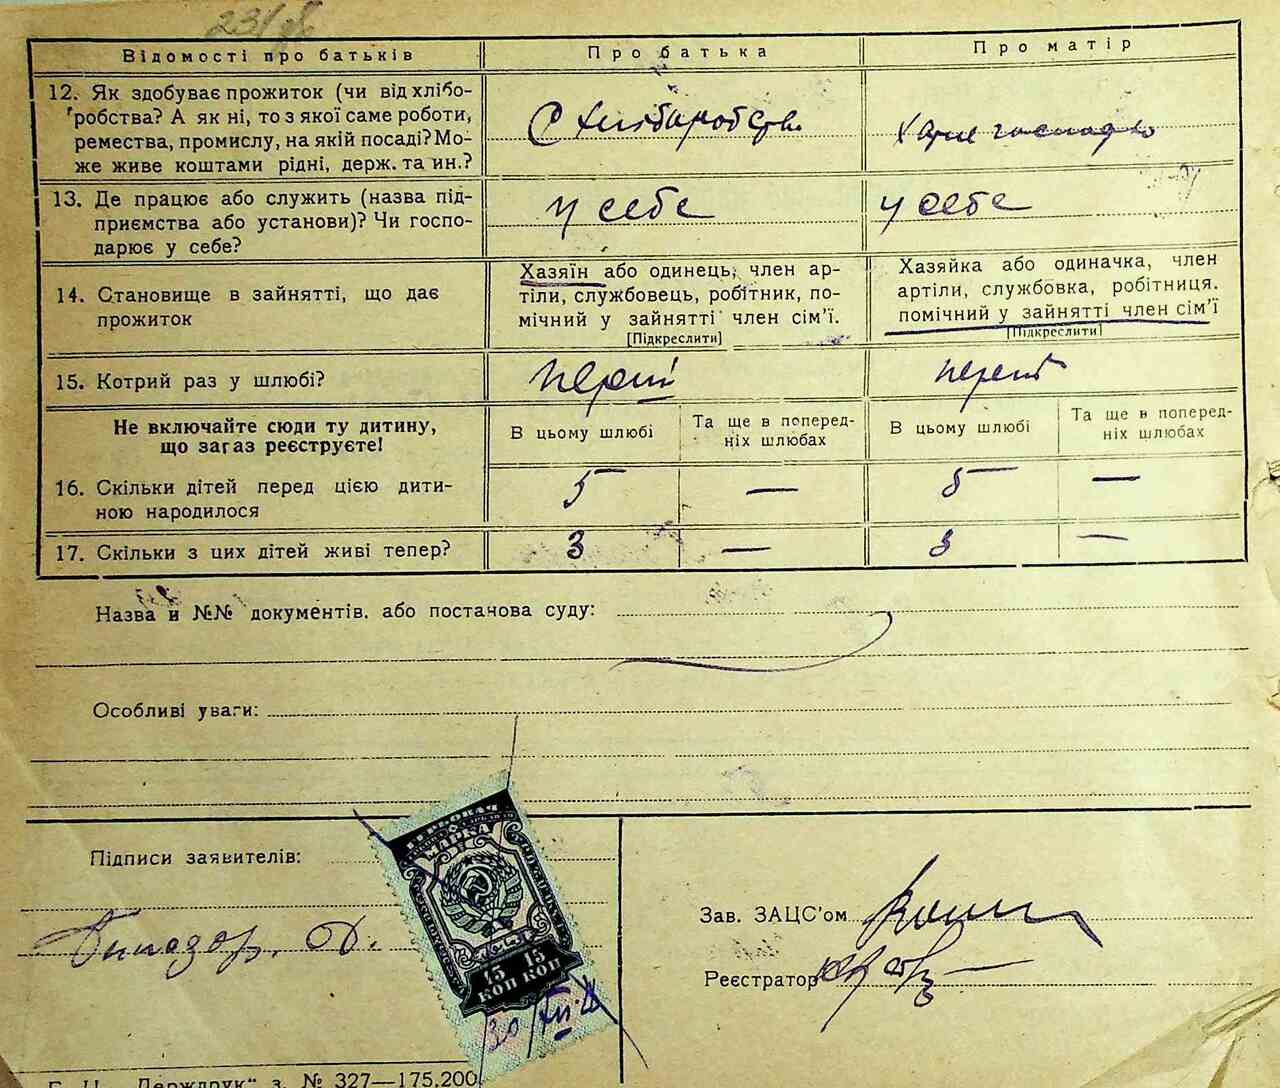 Відомості про батьків
Про батька
Про матір
12. Як здобуває прожиток (чи від хлібо-
робства? А як ні, то з якої саме роботи,
ремества, промислу, на якій посаді? Мо-
же живе коштами рідні, держ. та ин.?
13. Де працює або служить (назва під-
приємства або установи)? Чи госпо-
дарює у себе?
у себе
у себе
14. Становище в зайнятті, що дає
прожиток
Хазяїн або одинець, член ар-
тіли, службовець, робітник, по-
мічний у зайнятті член сім'ї.
[Підкреслити]
Хазяйка або одиначка, член
артіли, службовка, робітниця.
помічний у зайнятті член сім'ї
[Підкреслити]
15. Котрий раз у шлюбі?
Не включайте сюди ту дитину,
що загаз реєструєте!
В цьому шлюбі
Та ще в поперед-
ніх шлюбах
В цьому шлюбі
Та ще в поперед-
ніх шлюбах
16. Скільки дітей перед цією дити-
ною народилося
5
—
5
—
17. Скільки з цих дітей живі тепер?
3
—
3
—
Назва и №№ документів. або постанова суду:
Особливі уваги:
Підписи заявителів:
МАРКА
15 15
КОП КОП
30
Зав. ЗАЦС'ом
Реєстратор
"Держдрук" з. № 327—175.200